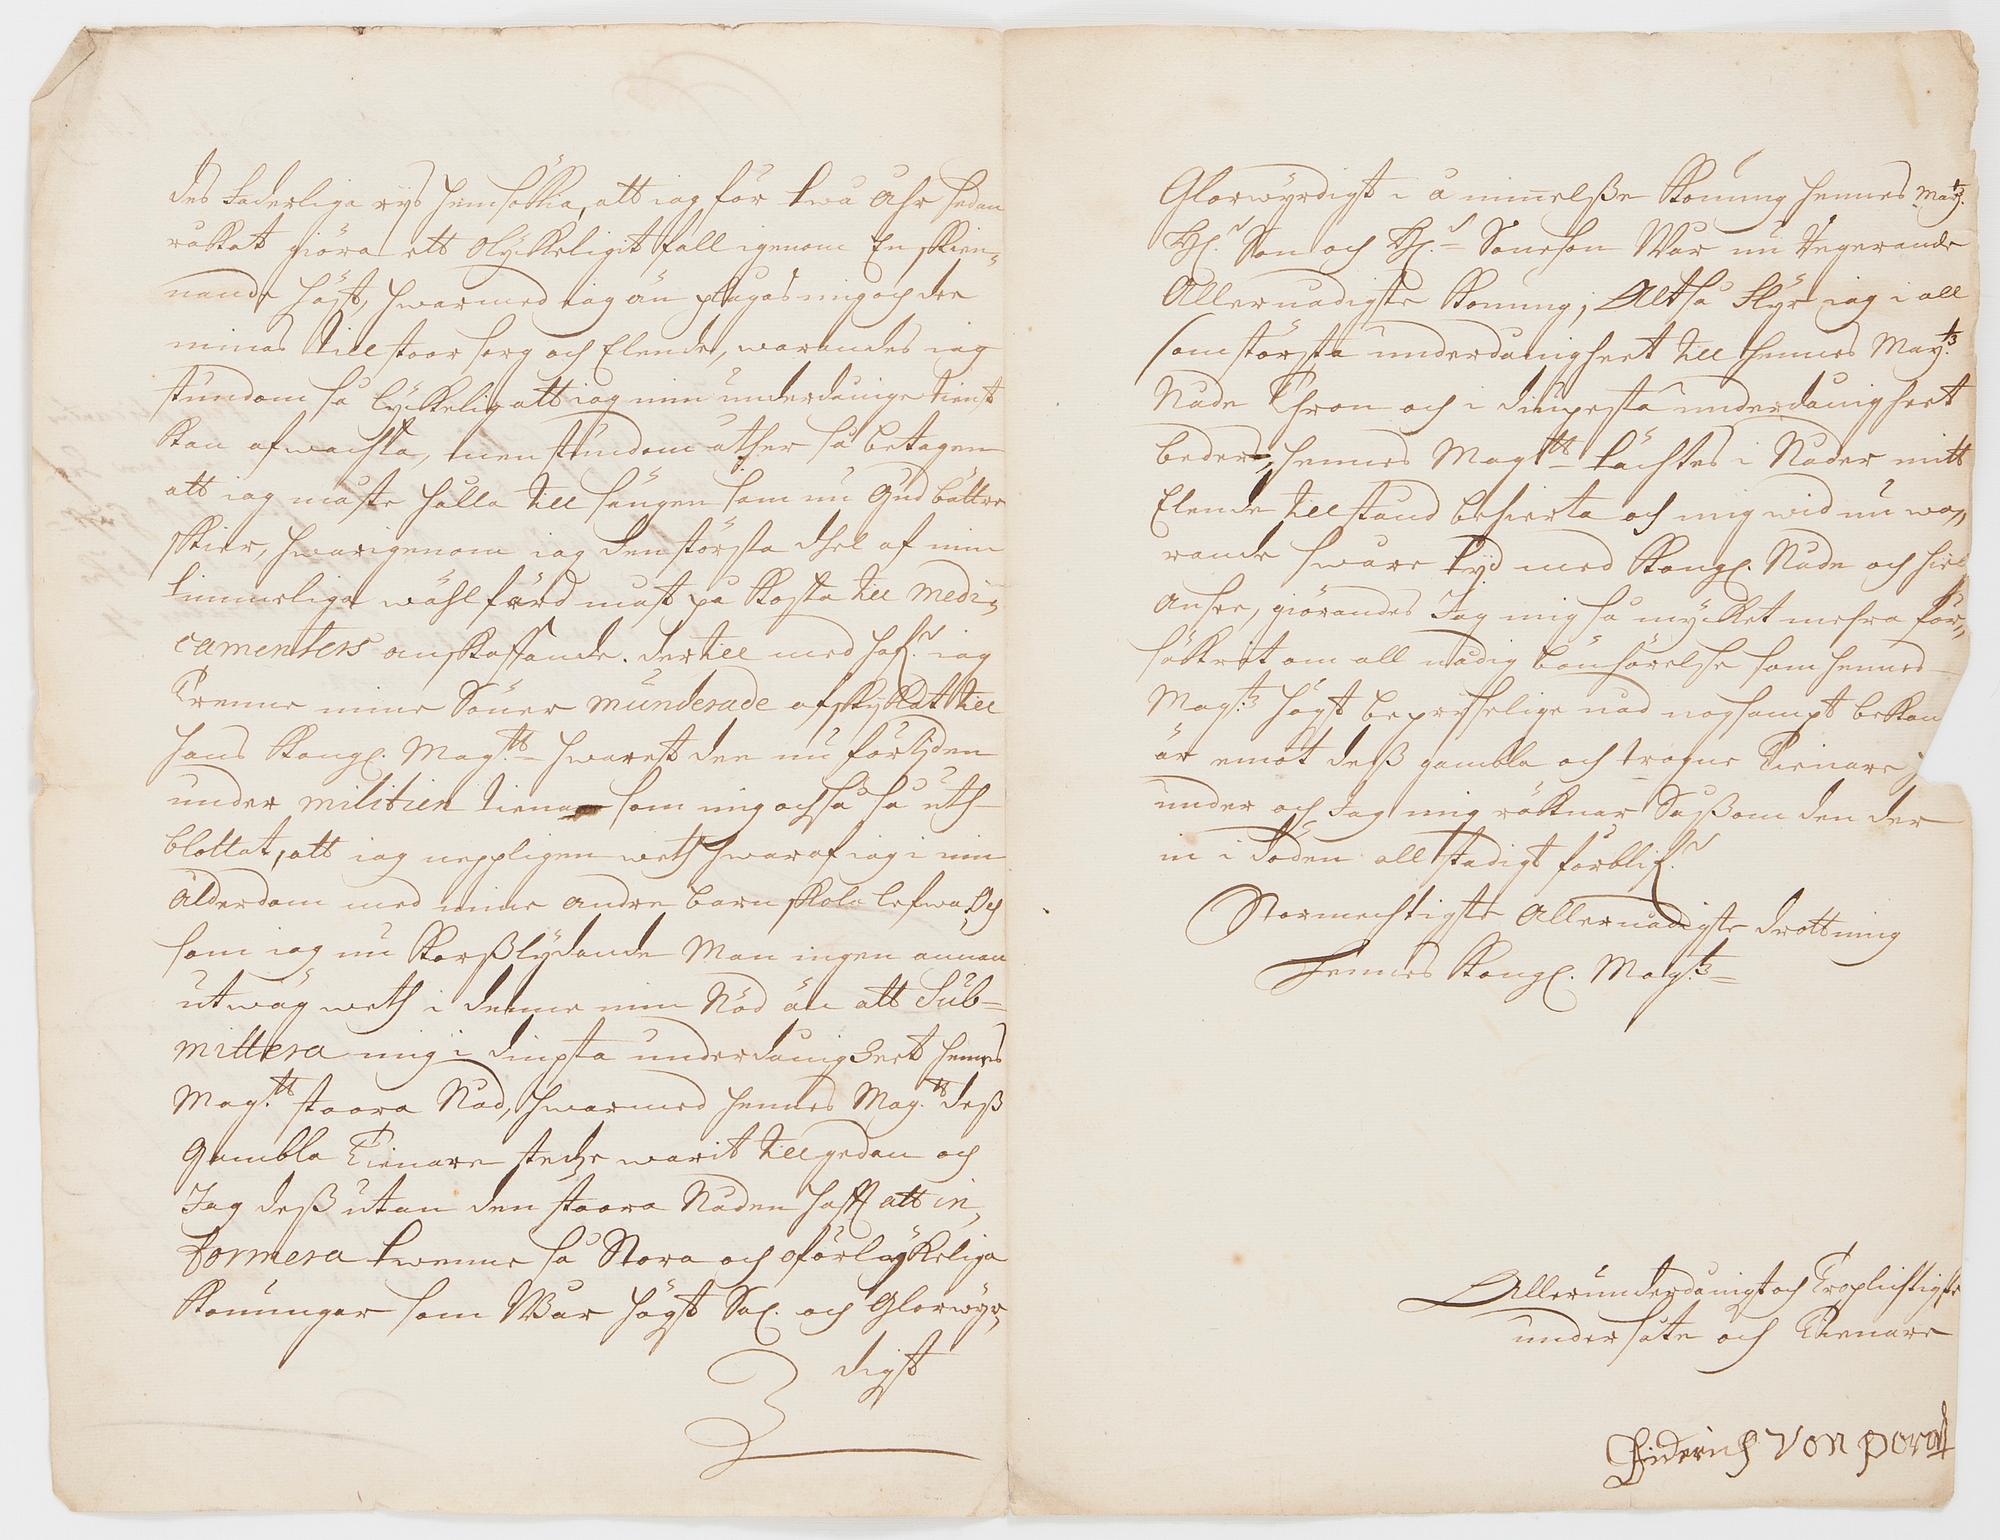 des Faderliga rijs hemsökia, att iag för twå åhr sedan
råkat giöra ett olyckeligit fall igenom En skien-
nande häst, hwarmed iag än plågas mig och dee
minas till stoor sorg och Elende, warandes iag
stundom så lyckelig att iag min underdånige tienst
kan afwachta, men stundom åther så betagen
att iag måste hålla till sängen som nu Gud bättre
skier, hwarigenom iag den största dhel af min
timmerliga wählfärd måst på kosta till medi-
camenters anskaffande. der till med hafr iag
Trenne mine Söner munderade afskykkat till
hans Kongl. Mayttz hwaräst dee nu förtijden
under militien tiena som mig ochså så uth-
blottat, att iag neppligen weth hwaraf iag i min
ålderdom med mine andre barn skola lefwa. Och
som iag nu Korßlydande Man ingen annan
utwäg weth i denne min Nöd än att Sub-
mittera mig i diupsta underdånigheet hennes
Maytts stoora Nåd, hwarmed hennes Maytts deß
Gambla Tienare stedze warit tillgedan och
Jag deß utan den stoora Nåden hafft att in-
formera twenne så Stora och oförlykeliga
Konungar som Wår högst Sal. och Glorwyr-
digst
Glorwyrdigst i åminnelße Konung hennes Maytz
Hl. Son och Hl. Soneson Wår nu Regerande
Allernådigste Konung, Altså Flyr iag i all
som största underdånigheet till hennes Maytz
Nåde Thron och i diupesta underdånigheet
beder, hennes Maytt täcktes i Nåder mitt
Elende tillstånd behierta och mig wid nu wa-
rande swåre tyd med Kongl. Nåde och hiel
ansee, giörandes Jag mig så mycket mehra för-
säkrat om all nådig bönhörelse som hennes
Maytz högst beprißelige nåd nogsampt bekan
är emot deß gambla och trogne Tienare
under och Jag mig räknar Såßom den der
in i döden all stadigt förblifr
Stormechtigste Allernådigste Drottning
Hennes Kongl. Maytz
Allerunderdånigst och Troplichtigste
undersåte och Tienare
Diderich Von porat